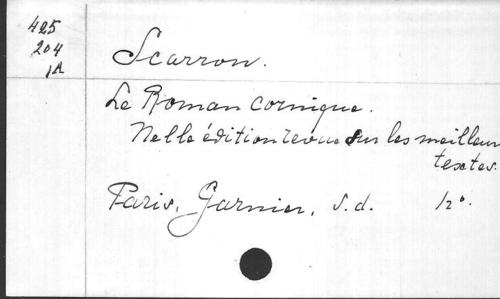 425
204
1A
Scarron.
Le Roman comique.
Nelle édition revue sur les meilleurs
textes.
Paris, Garnier, s.d. 12°.